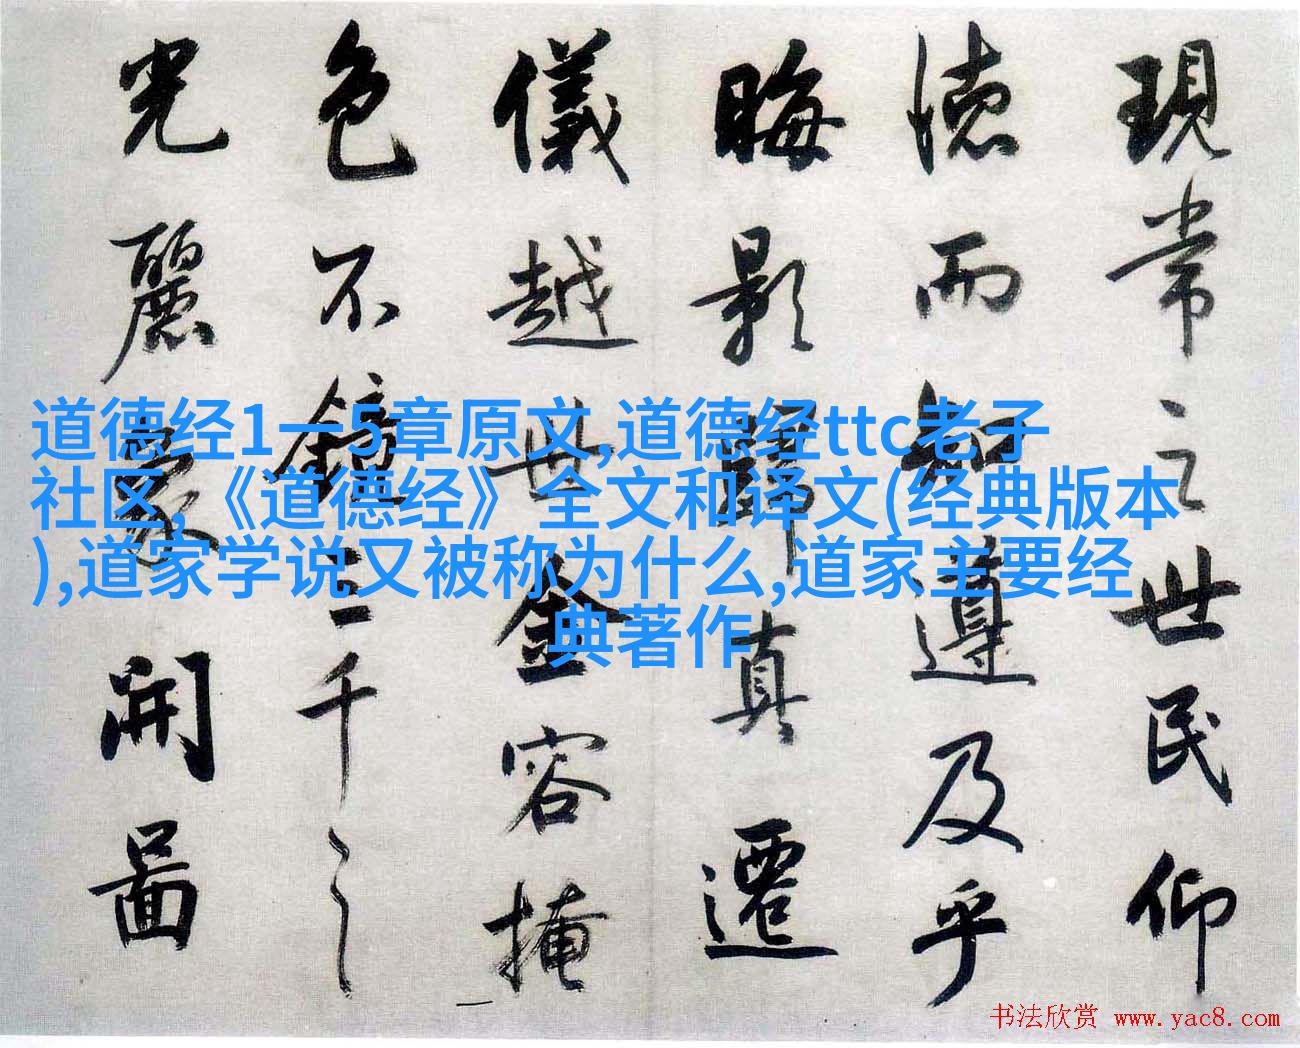 現常之世民仰
徳而知遵及乎
晦影歸真遷
儀越世金容掩
色不鏡三千之
光麗象開圖
道德经1一5章原文,道德经ttc老子
社区,《道德经》全文和译文(经典版本
),道家学说又被称为什么,道家主要经
典著作
书法欣赏 www.yac8.com